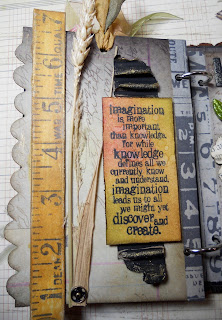 Imagination
is more
important
than knowledge.
For while
knowledge
defines all we
currently know
and understand,
imagination
leads us to all
we might yet
discover and
create.